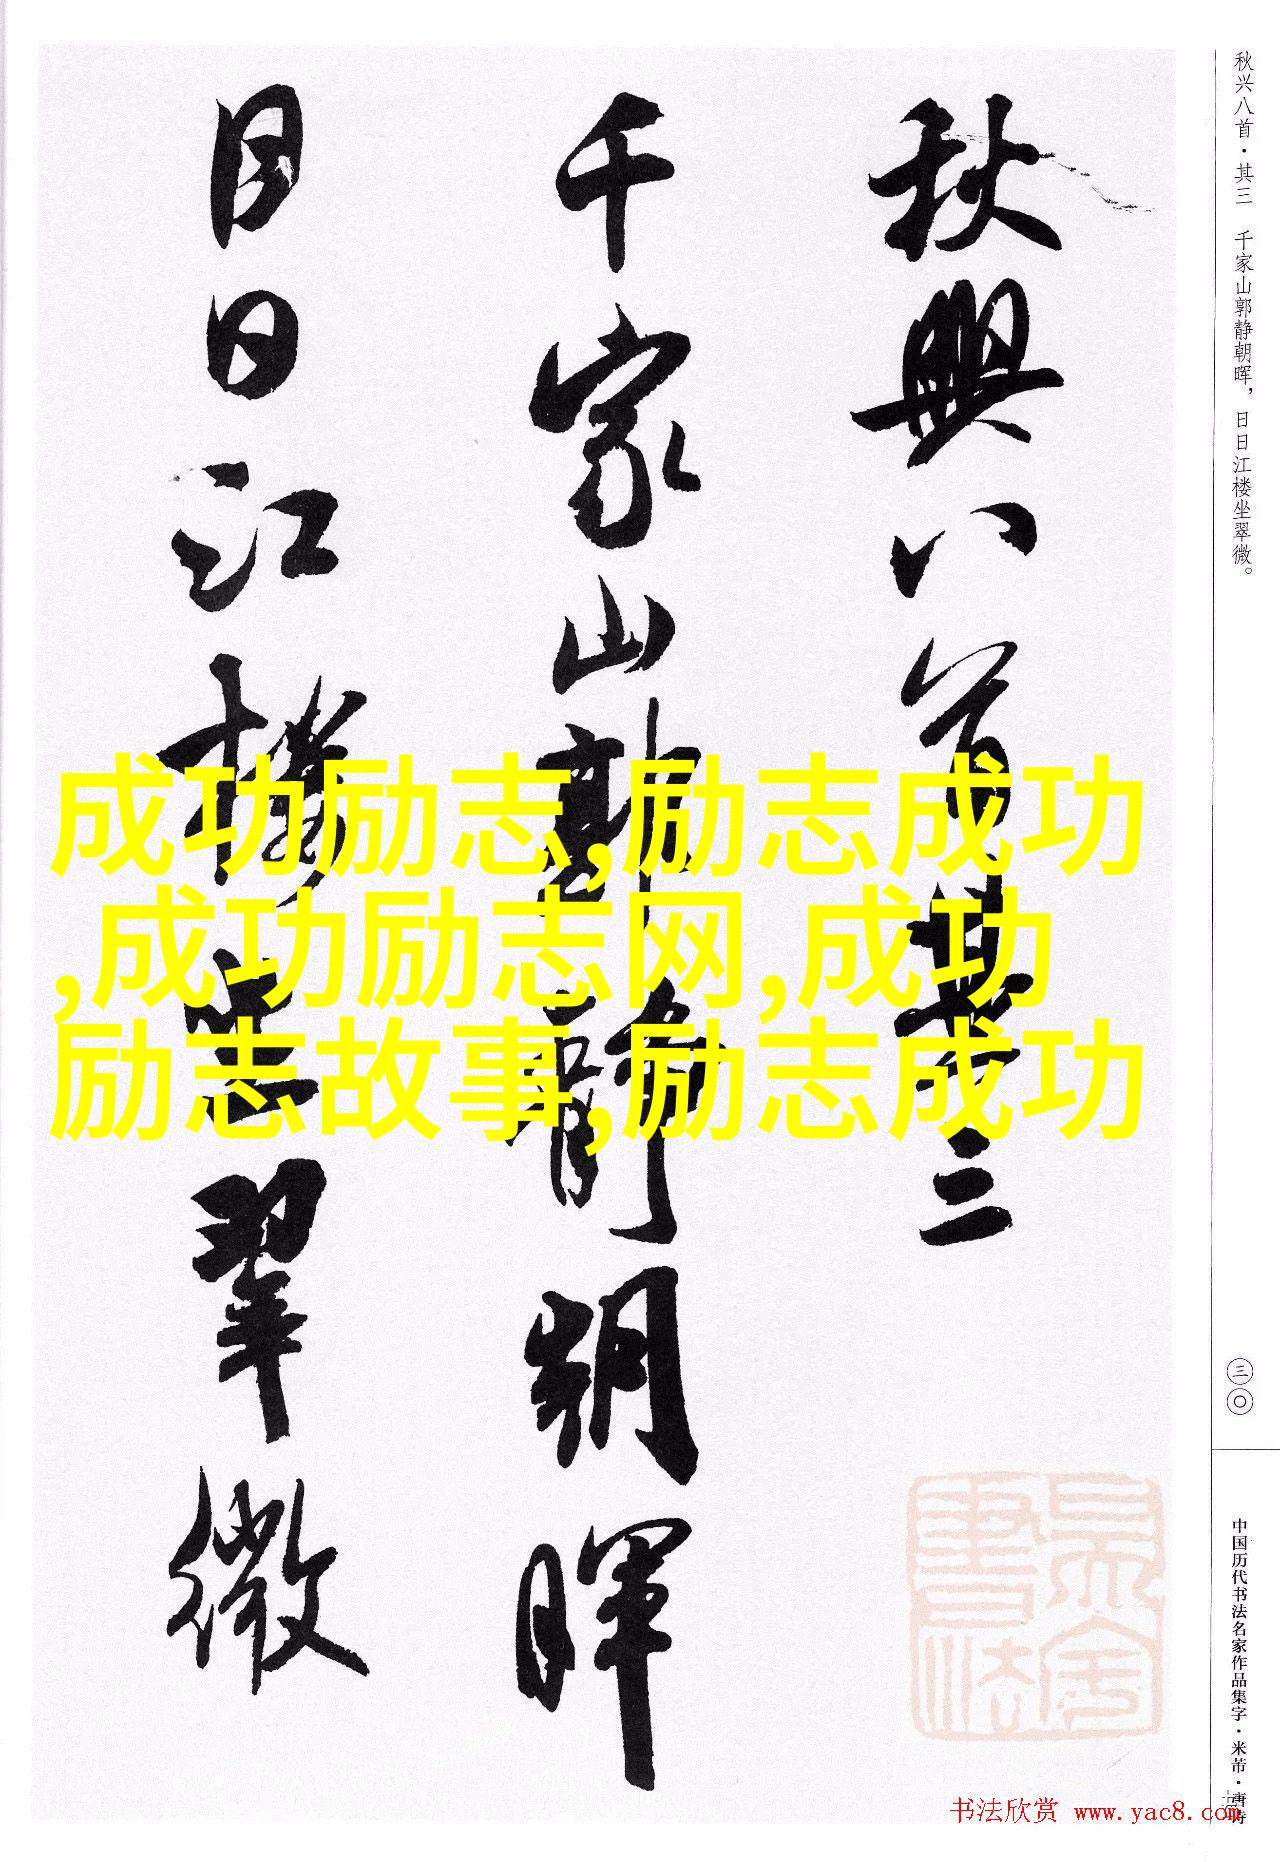 秋興八首其三
千家山郭靜朝暉
日日江樓坐翠微
秋兴八首·其三　千家山郭静朝晖，日日江楼坐翠微。
三〇
中国历代书法名家作品集字·米芾·唐诗
成功励志,励志成功
,成功励志网,成功
励志故事,励志成功
书法欣赏 www.yac8.com